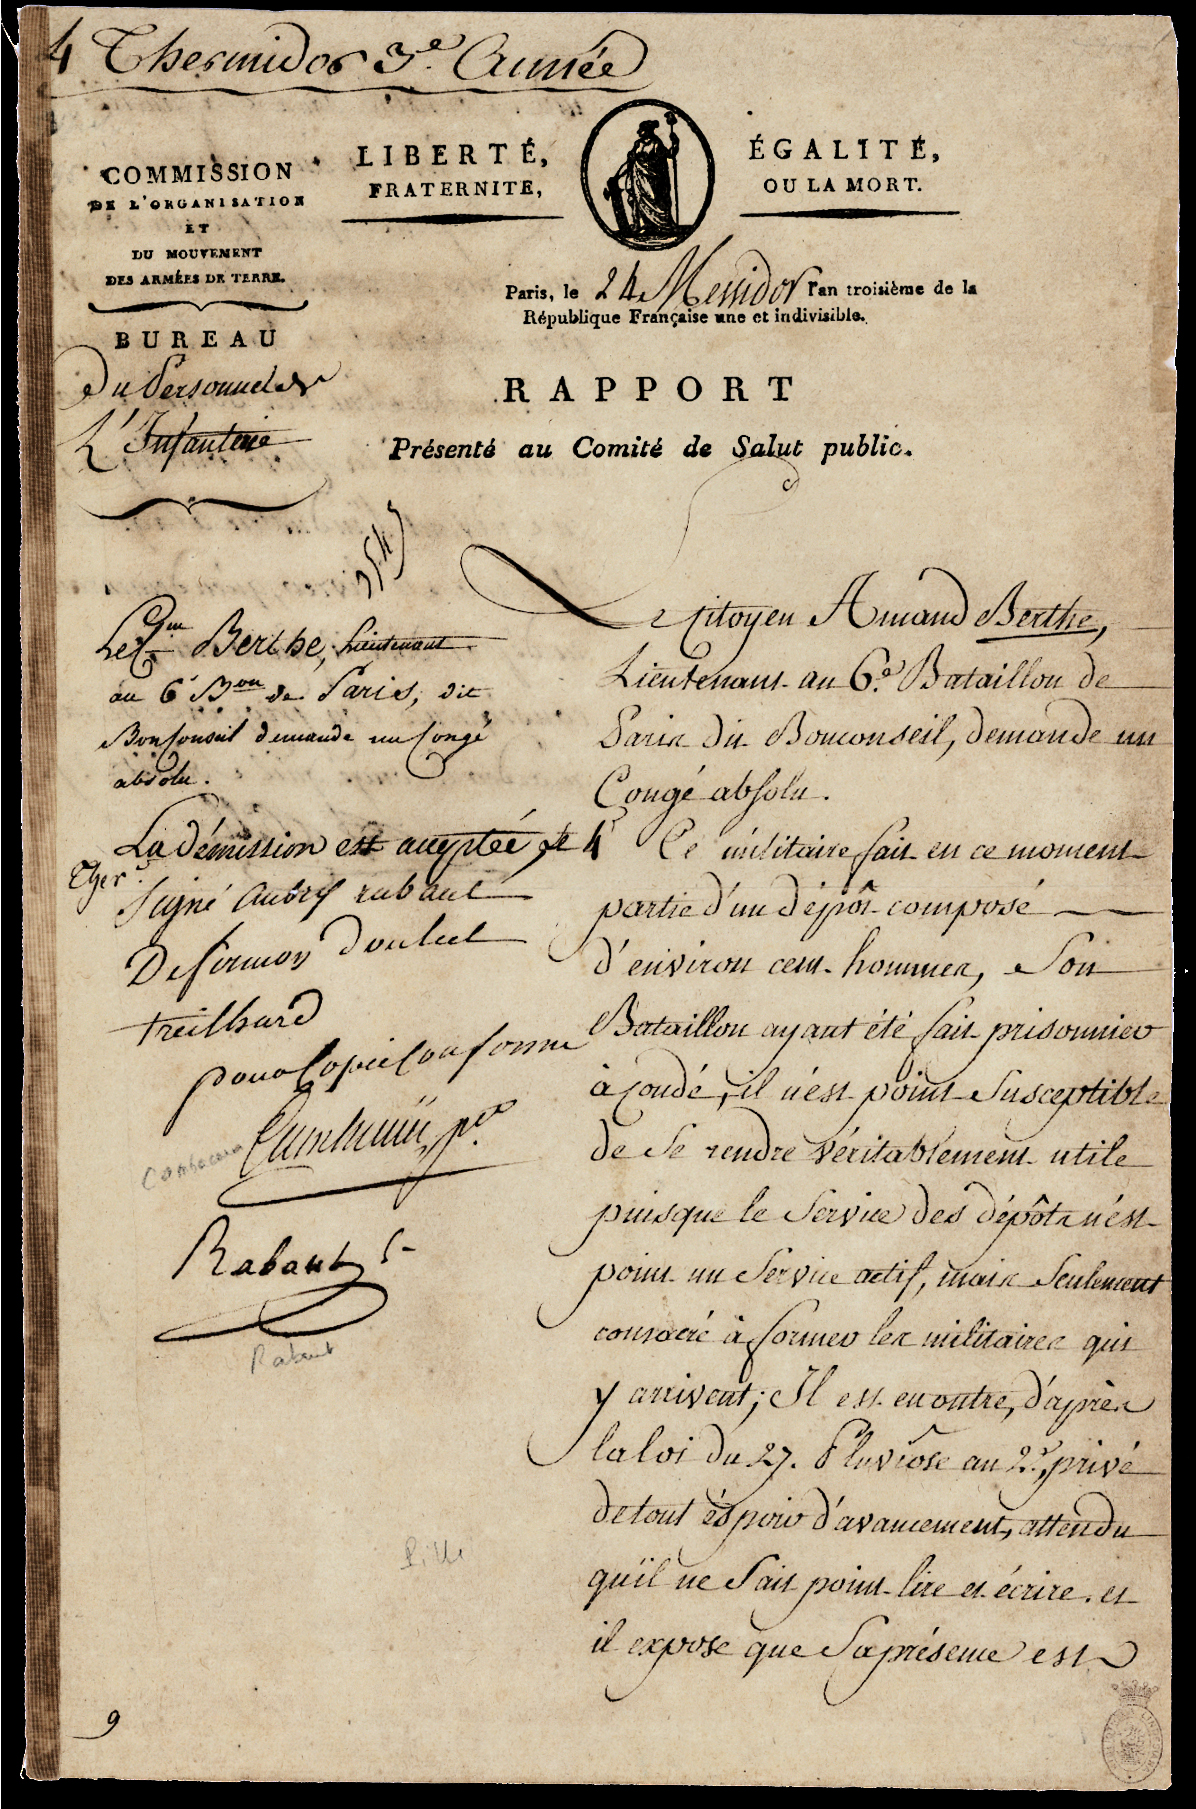 4 Thermidor 3.e Année
COMMISSION
DE L'ORGANISATION
ET
DU MOUVEMENT
DES ARMÉES DE TERRE.
BUREAU
Du Personnel de
L'Infanterie
LIBERTÉ,
FRATERNITE,
ÉGALITÉ,
OU LA MORT.
Paris, le 24 Messidor l'an troisième de la
République Française une et indivisible.
RAPPORT
Présenté au Comité de Salut public.
Le C.en Berthe, Lieutenant
au 6.e B.on de Paris, dit
BonConseil demande un Congé
absolu.
La démission est acceptée, le 4
Ther.or
Signé Aubry rabaut
Defermon Doulcet
treilhard
pour Copie Conforme
Cambaceres
Rabaut
Rabaut
Pille
9
Le Citoyen Armand Berthe,
Lieutenant au 6.e Bataillon de
Paris dit Bonconseil, demande un
Congé absolu.
Ce militaire fait en ce moment
partie d'un dépôt composé
d'environ cent hommes, Son
Bataillon ayant été fait prisonnier
à Condé, il n'est point Susceptible
de Se rendre véritablement utile
puisque le Service des dépôts n'est
point un Service actif, mais Seulement
consacré à former les militaires qui
y arrivent; Il est en outre, d'après
la loi du 27. Pluviôse an 2.e, privé
de tout éspoir d'avancement, attendu
qu'il ne Sait point lire et écrire. et
il expose que Sa présence est